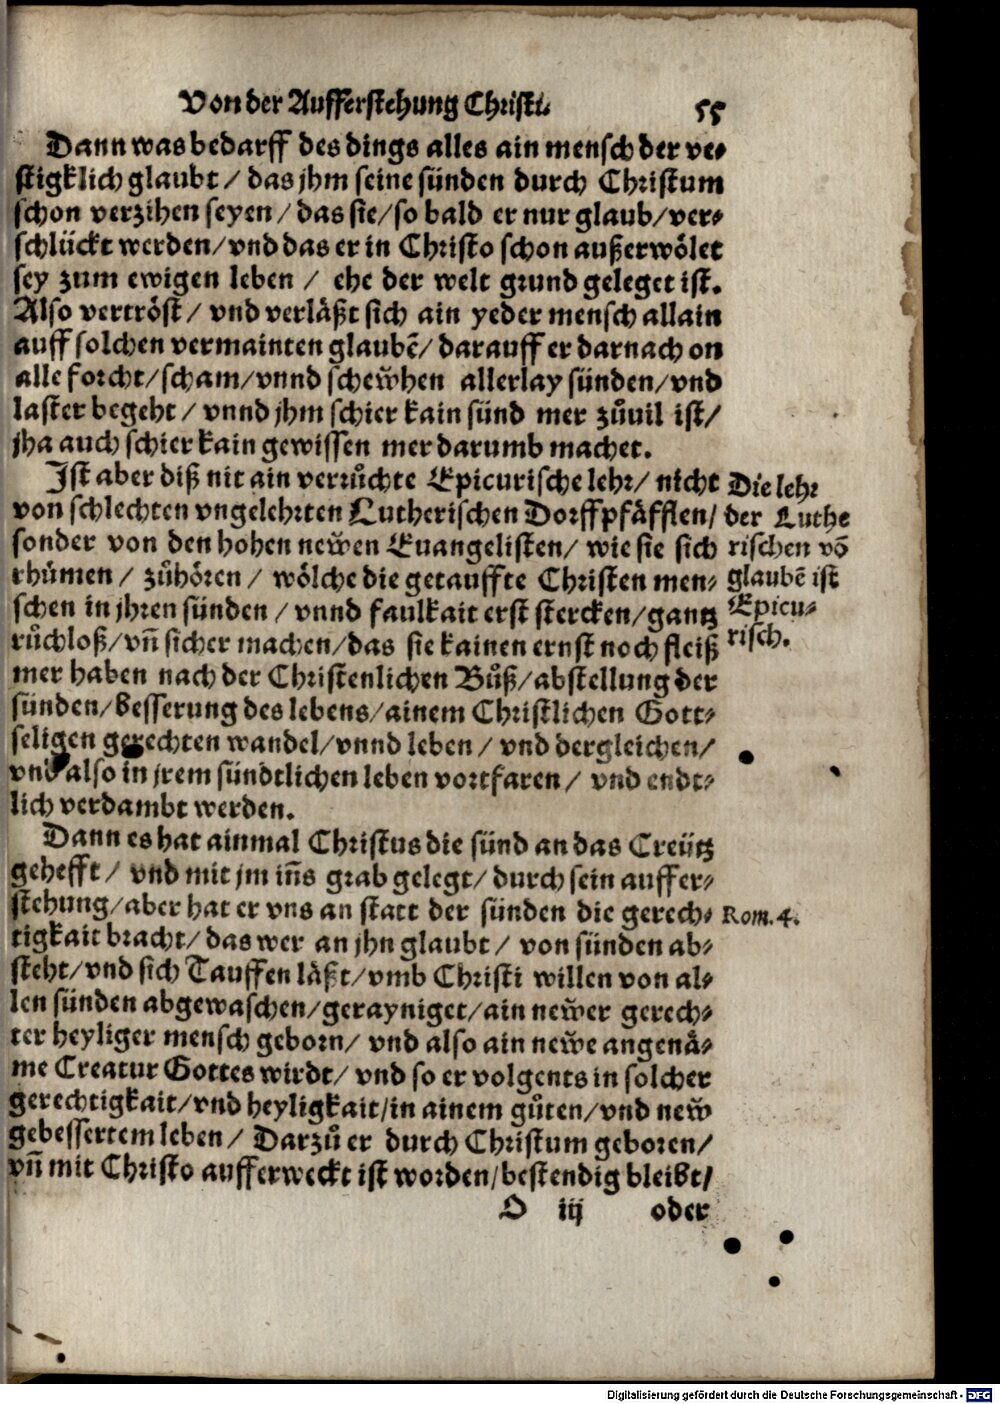 Von der Aufferstehung Christi. 55
Dann was bedarff des dings alles ain mensch der ve⸗
stigklich glaubt / das jhm seine sünden durch Christum
schon verzihen seyen / das sie / so bald er nur glaub / ver⸗
schlückt werden / vnd das er in Christo schon außerwölet
sey zum ewigen leben / ehe der welt grund geleget ist.
Also vertröst / vnd verläßt sich ain yeder mensch allain
auff solchen vermainten glaubē / darauff er darnach on
alle forcht / scham / vnnd schew̌hen allerlay sünden / vnd
laster begeht / vnnd jhm schier kain sünd mer zůuil ist /
jha auch schier kain gewissen mer darumb machet.
Ist aber diß nit ain verrůchte Epicurische lehr / nicht
von schlechten vngelehrten Lutherischen Dorffpfäfflen /
sonder von den hohen new̌en Euangelisten / wie sie sich
rhůmen / zůhören / wölche die getauffte Christen men⸗
schen in jhren sünden / vnnd faulkait erst stercken / gantz
růchloß / vñ sicher machen / das sie kainen ernst noch fleiß
mer haben nach der Christenlichen Bůß / abstellung der
sünden / besserung des lebens / ainem Christlichen Gott⸗
seligen gerechten wandel / vnnd leben / vnd dergleichen /
vnd also in jrem sündtlichen leben vortfaren / vnd endt⸗
lich verdambt werden.
Die lehr
der Luthe
rischen võ
glaubē ist
Epicu⸗
risch.
Dann es hat ainmal Christus die sünd an das Creütz
gehefft / vnd mit jm iñs grab gelegt / durch sein auffer⸗
stehung / aber hat er vns an statt der sünden die gerech⸗
tigkait bracht / das wer an jhn glaubt / von sünden ab⸗
steht / vnd sich Tauffen läßt / vmb Christi willen von al⸗
len sünden abgewaschen / gerayniget / ain new̌er gerech⸗
ter heyliger mensch geborn / vnd also ain new̌e angenä⸗
me Creatur Gottes wirdt / vnd so er volgents in solcher
gerechtigkait / vnd heyligkait / in ainem gůten / vnd new̌
gebessertem leben / Darzů er durch Christum geboren /
vñ mit Christo aufferweckt ist worden / bestendig bleibt /
Rom. 4.
O iij oder
Digitalisierung gefördert durch die Deutsche Forschungsgemeinschaft - DFG